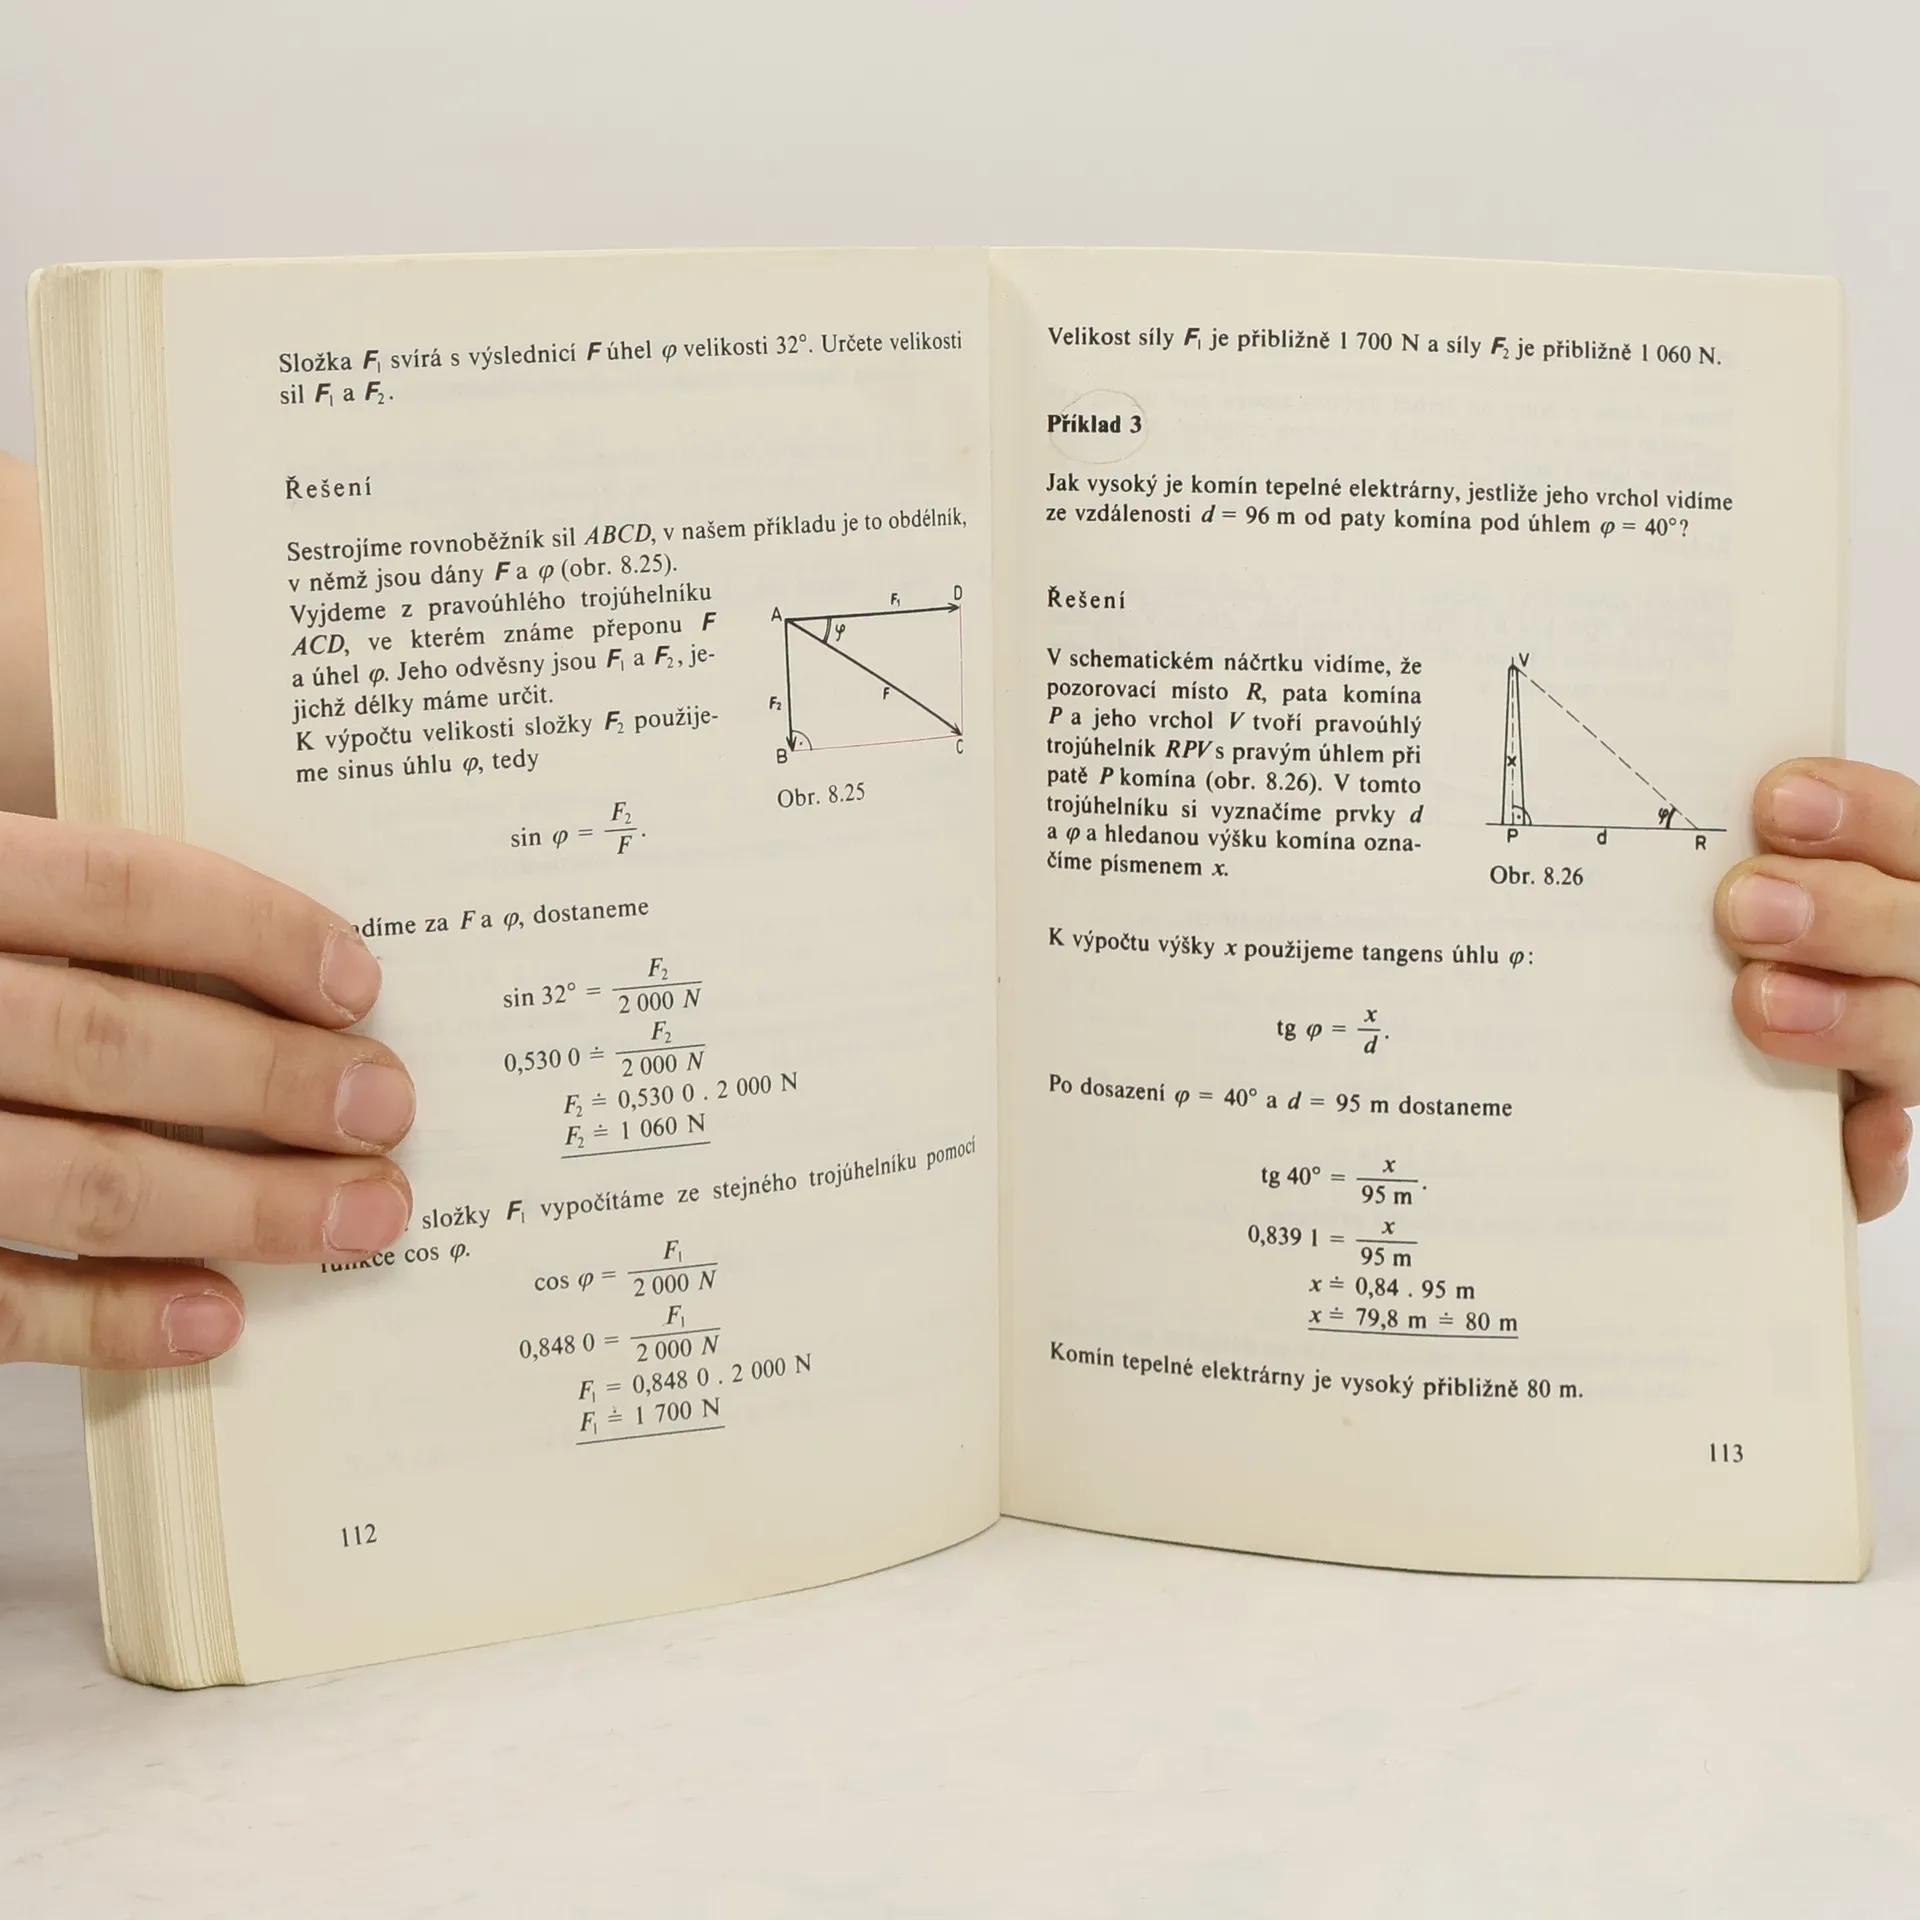 Složka F₁ svírá s výslednicí F úhel φ velikosti 32°. Určete velikosti
sil F₁ a F₂.
Řešení
Sestrojíme rovnoběžník sil ABCD, v našem příkladu je to obdélník,
v němž jsou dány F a φ (obr. 8.25).
Vyjdeme z pravoúhlého trojúhelníku
ACD, ve kterém známe přeponu F
a úhel φ. Jeho odvěsny jsou F₁ a F₂, je-
jichž délky máme určit.
K výpočtu velikosti složky F₂ použije-
me sinus úhlu φ, tedy
A F₁ D
φ
F₂ F
B C
Obr. 8.25
sin φ = F₂/F.
díme za F a φ, dostaneme
sin 32° = F₂/2 000 N
0,530 0 ≐ F₂/2 000 N
F₂ ≐ 0,530 0 . 2 000 N
F₂ ≐ 1 060 N
složky F₁ vypočítáme ze stejného trojúhelníku pomocí
funkce cos φ.
cos φ = F₁/2 000 N
0,848 0 = F₁/2 000 N
F₁ = 0,848 0 . 2 000 N
F₁ ≐ 1 700 N
112
Velikost síly F₁ je přibližně 1 700 N a síly F₂ je přibližně 1 060 N.
Příklad 3
Jak vysoký je komín tepelné elektrárny, jestliže jeho vrchol vidíme
ze vzdálenosti d = 96 m od paty komína pod úhlem φ = 40°?
Řešení
V schematickém náčrtku vidíme, že
pozorovací místo R, pata komína
P a jeho vrchol V tvoří pravoúhlý
trojúhelník RPV s pravým úhlem při
patě P komína (obr. 8.26). V tomto
trojúhelníku si vyznačíme prvky d
a φ a hledanou výšku komína ozna-
číme písmenem x.
V
x
φ
P d R
Obr. 8.26
K výpočtu výšky x použijeme tangens úhlu φ:
tg φ = x/d.
Po dosazení φ = 40° a d = 95 m dostaneme
tg 40° = x/95 m.
0,839 1 = x/95 m
x ≐ 0,84 . 95 m
x ≐ 79,8 m ≐ 80 m
Komín tepelné elektrárny je vysoký přibližně 80 m.
113